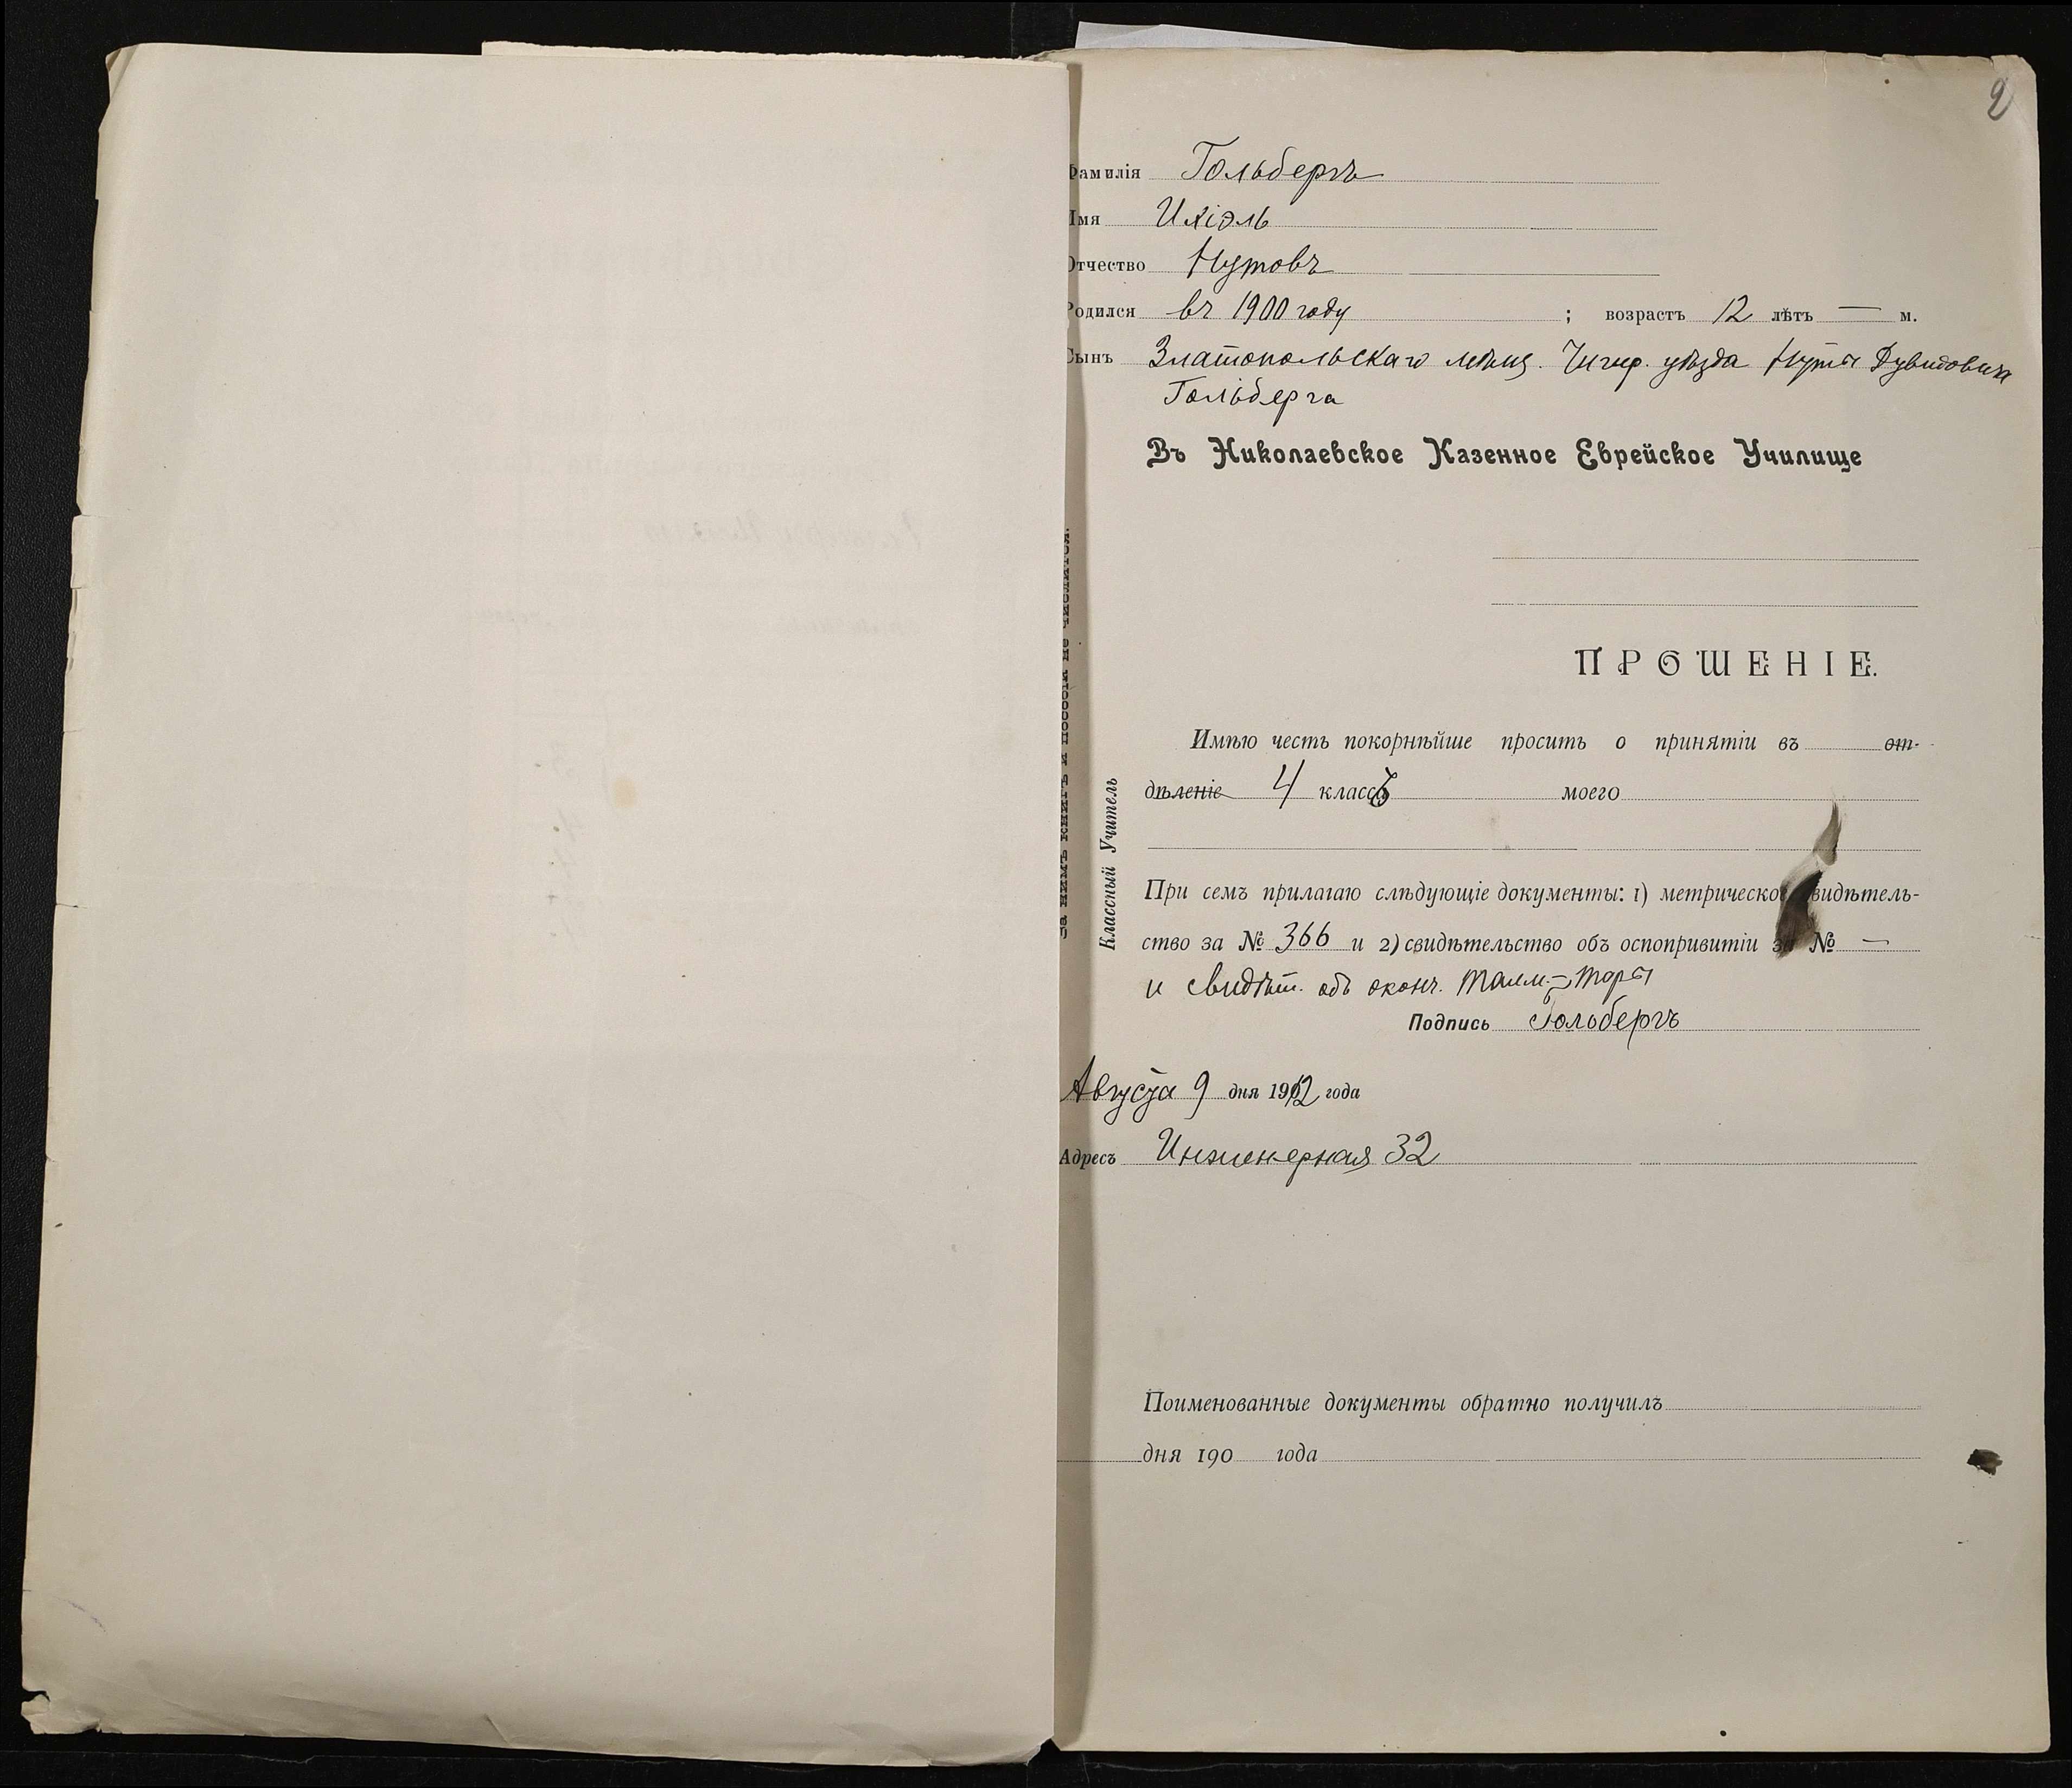 2
Фамилія Гольбергъ
Имя Ихіэль
Отчество Нутовъ
Родился въ 1900 году ; возрастъ 12 лѣтъ — м.
Сынъ Златопольскаго мѣщ. Чигир. уѣзда Нуты Дувидовича
Гольберга
Въ Николаевское Казенное Еврейское Училище
ПРОШЕНІЕ.
Имѣю честь покорнѣйше просить о принятіи въ от-
дѣленіе 4 классъ моего
При семъ прилагаю слѣдующіе документы: 1) метрическое свидѣтель-
ство за № 366 и 2) свидѣтельство объ оспопривитіи за № —
и свидѣт. объ оконч. Талм.-Торы
Подпись Гольбергъ
Августа 9 дня 1912 года
Адресъ Инженерная 32
Поименованные документы обратно получилъ
дня 190 года
за нимъ книгъ и пособій не числится.
Классный Учитель